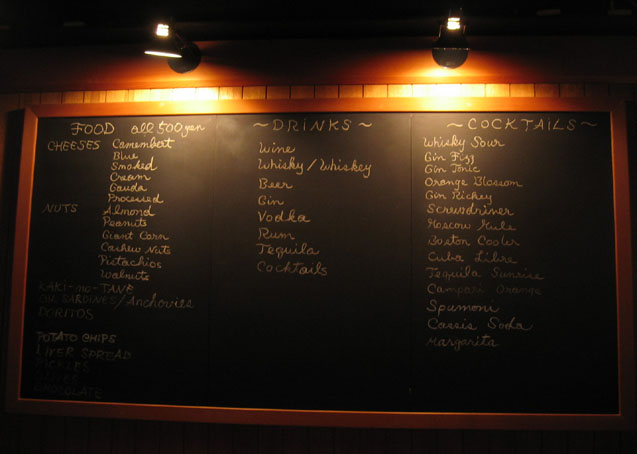 FOOD all 500yen
CHEESES Camembert
Blue
Smoked
Cream
Gauda
Processed
NUTS Almond
Peanuts
Giant Corn
Cashew Nuts
Pistachios
Walnuts
KAKI-no-TANE
OIL SARDINES/Anchovies
DORITOS
POTATO CHIPS
LIVER SPREAD
PICKLES
CHOCOLATE
~DRINKS~
Wine
Whisky/Whiskey
Beer
Gin
Vodka
Rum
Tequila
Cocktails
~COCKTAILS~
Whisky Sour
Gin Fizz
Gin Tonic
Orange Blossom
Gin Rickey
Screwdriver
Moscow Mule
Boston Cooler
Cuba Libre
Tequila Sunrise
Campari Orange
Spumoni
Cassis Soda
Margarita